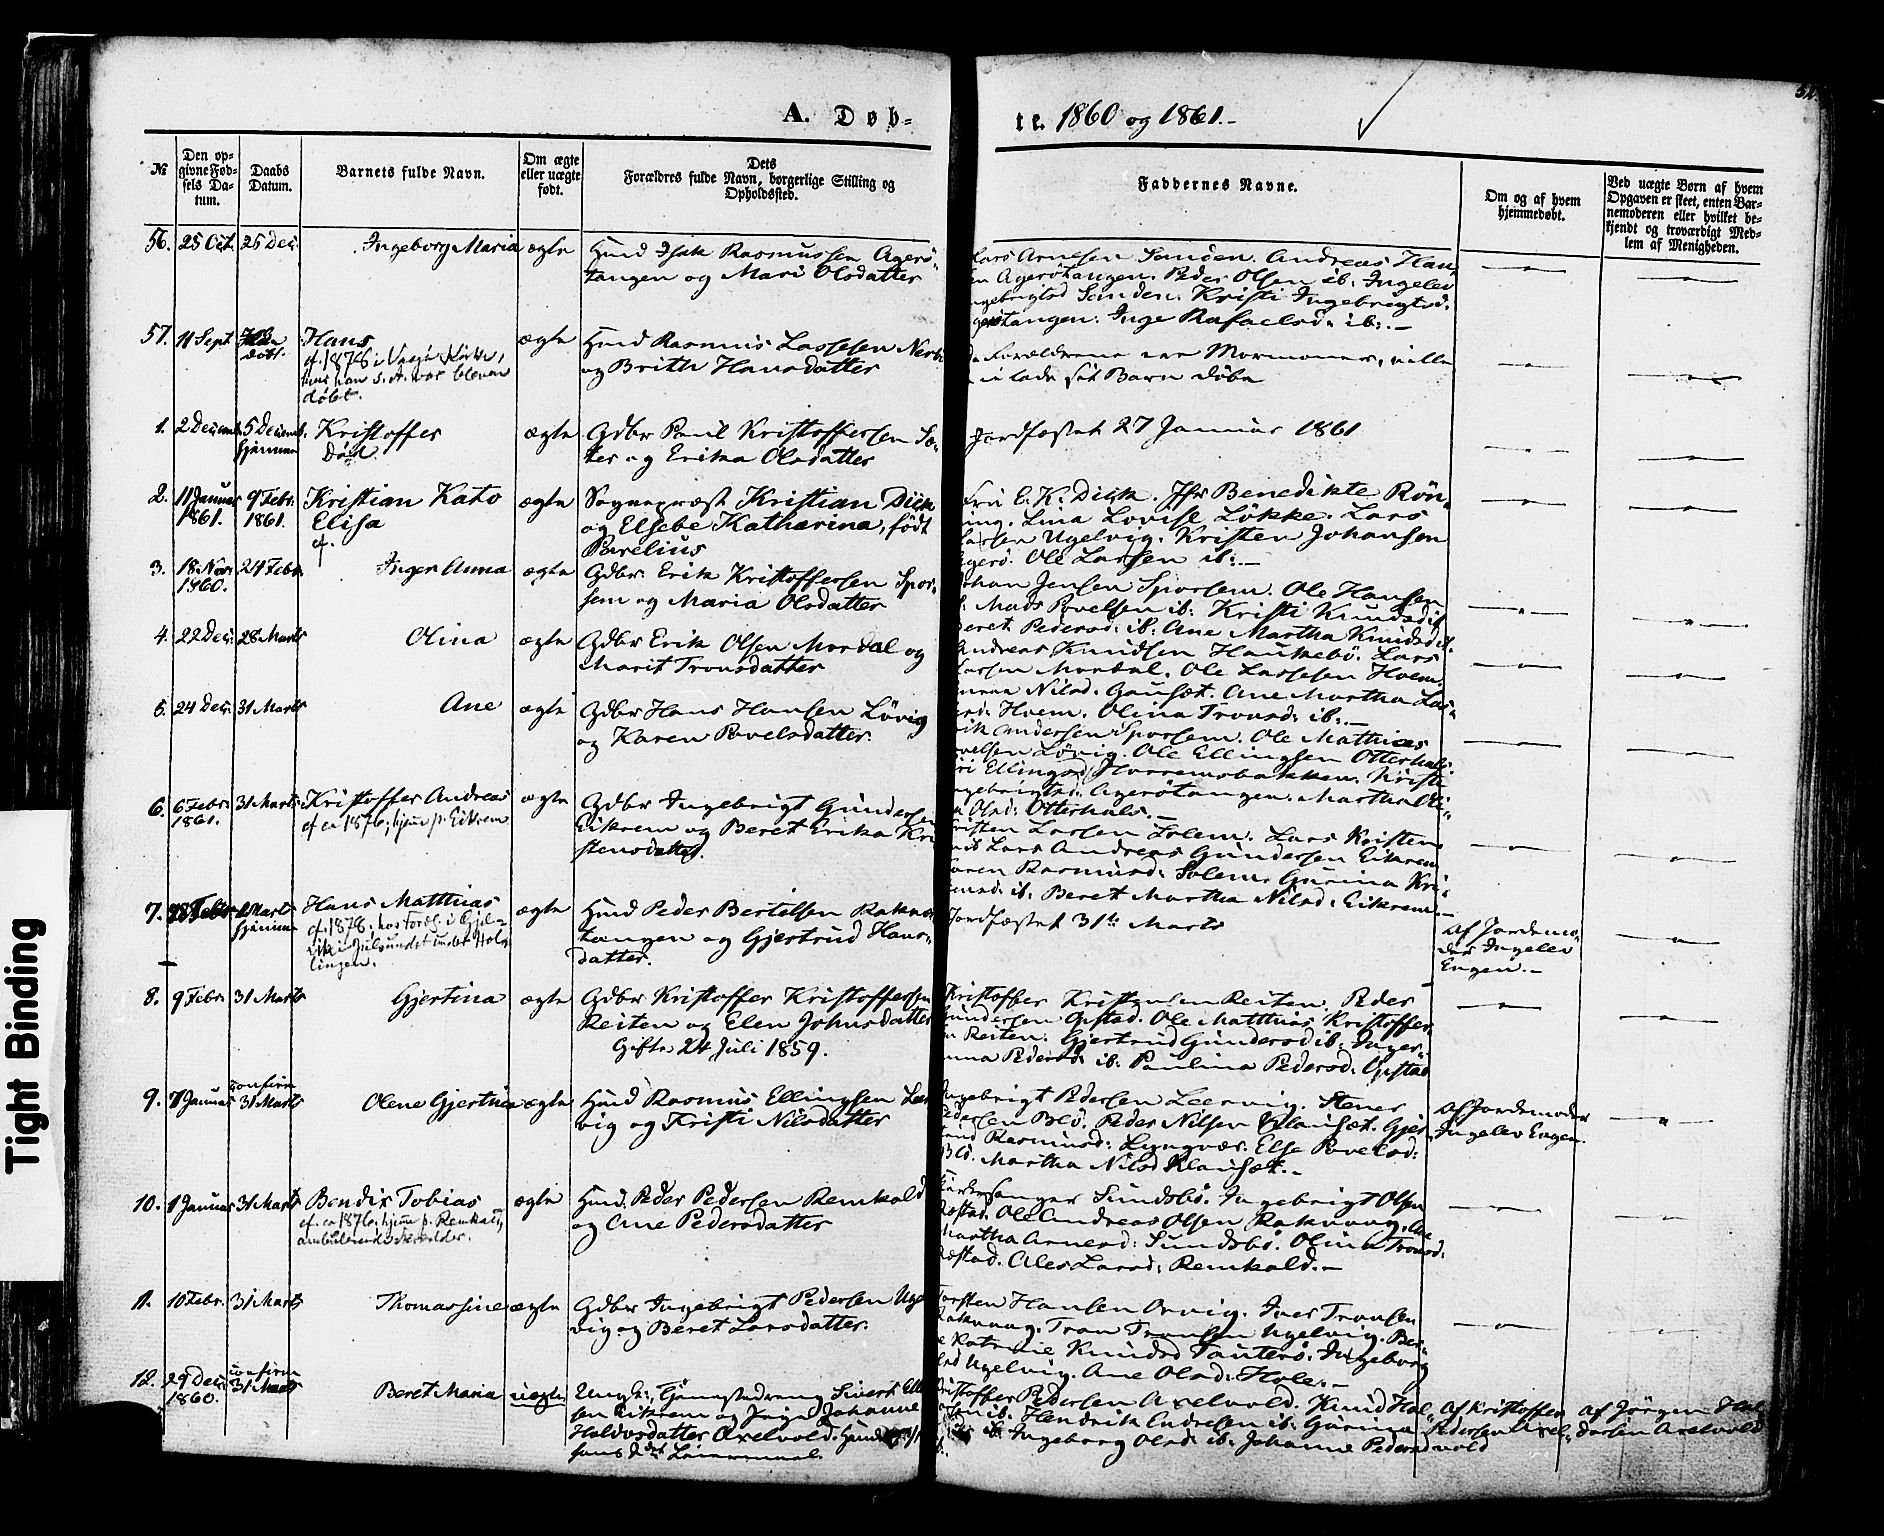 A. Døb-
te. 1860 og 1861.-
№
Den op-
givne Fød-
sels Da-
tum.
Daabs
Datum.
Barnets fulde Navn.
Om ægte
eller uægte
født.
Dets
Forældres fulde Navn, borgerlige Stilling og
Opholdssted.
Faddernes Navne.
Om og af hvem
hjemmedøbt.
Ved uægte Børn af hvem
Opgaven er skeet, enten Bar-
nemoderen eller hvilket be-
kjendt og troværdigt Med-
lem af Menigheden.
56. 25 Oct. 25 Dec. Ingeborg Maria ægte
Husmd Isak Rasmussen Agerø-
tangen og Mari Olsdatter
Lars Arnesen Sanden. Andreas Han-
en Agerøtangen. Peder Olsen ib: Ingelev
ngebrigtsd Sanden. Kristi Ingebrigtsd.
gerøtangen. Inge Rafaelsd: ib:.-
57. 11 Sept Hans ægte
døbt.
cf. 1878 i Vaagø Kirke,
hvor han s. A. var bleven
døbt.
Husmd Rasmus Lassesen
og Brith Hansdatter
Forældrene ere Mormoner, ville
lade sit Barn døbe
1. 2 Decemb. 5 Decemb. Kristoffer ægte
hjemme Død.
Gdbr Poul Kristoffersen Sæ-
ter og Erika Olsdatter
Jordfæstet 27 Januar 1861
2. 11 Januar 9 Febr. Kristian Kato ægte
1861. 1861. Elisa
cf.
Sognepræst Kristian Dick
og Elsebe Katharina, født
Parelius
Fru E. K. Dick. Jfr Benedikte Røn-
ning. Lina Lovise Løkke. Lars
Larsen Ugelvig. Kristen Johansen
Agerø. Ole Larsen ib:.-
3. 18 Nov. 24 Febr. Inger Anna ægte
1860.
Gdbr. Erik Kristoffersen Spor-
sem og Maria Olsdatter
Johan Jensen Sporsem. Ole Hansen
Mads Povelsen ib: Kristi Knudsd ib
Beret Pedersd: ib: Ane Martha Knudsd ib.
4. 22 Dec. 28 Marts Olina ægte
Gdbr Erik Olsen Mordal og
Marit Tronsdatter
Andreas Knudsen Haukebø. Lars
Larsen Mordal. Ole Lassesen Hoem.
Nilsd. Gauset. Ane Martha Las-
sesd: Hoem. Olina Tronsd: ib:.-
5. 24 Dec. 31 Marts Ane ægte
Gdbr Hans Hansen Løvig
og Karen Povelsdatter.
Erik Andersen Sporsem. Ole Mathias
Povelsen Løvig. Ole Ellingsen Otterhals.
Ellingsd Horremsbakken. Kristi
Ingebrigtsd: Agerøtangen. Martha Eli-
Olsd: Otterhals.-
6. 6 Febr. 31 Marts Kristoffer Andreas ægte
1861. cf ca 1876; hjem p. Eikrem
Gdbr Ingebrigt Gundersen
Eikrem og Beret Erika Kri
stensdatter.
Kristen Larsen Solem. Lars Kristens
ib Lars Andreas Gundersen Eikrem
Karen Rasmusd: Solem. Gurina Kri-
stensd: ib. Beret Martha Nilsd: Eikrem.-
7. Febr. Marts Hans Matthias ægte
hjemme
cf. 1878;
Husmd Peder Bertelsen Raknes
tangen og Gjertrud Hans-
datter.
Jordfæstet 31te Marts
af Jordemo-
der Ingelev
Engen.-
8. 9 Febr. 31 Marts Gjertina ægte
Gdbr Kristoffer Kristoffersen
Reiten og Elen Johnsdatter
Gifte 24 Juli 1859.
Kristoffer Kristensen Reiten. Peder
Gundersen Opstad. Ole Matthias Kristoffer-
n Reiten. Gjertrud Gundersd ib: Inger-
anna Pedersd: ib: Paulina Pedersd: Opstad
9. 7 Januar confirm Olene Gjertine ægte
31 Marts
Husmd Rasmus Ellingsen Leer
vig og Kristi Nilsdatter
Ingebrigt Pedersen Leervig. Stener
Pedersen Blø. Peder Nilsen Klauset. Gjer-
trud Rasmusd: Lyngvær. Else Povelsd:
Blø. Martha Nilsd Klauset.-
af Jordemoder
Ingelev Engen.
10. 1 Januar 31 Marts Bendix Tobias ægte
cf. ca 1876; hjem p. Remkald,
ambulerende
Husmd. Peder Pedersen Remkald
og Ane Pedersdatter
Kirkesanger Sundsbø. Ingebrigt Olsen
Røstad. Ole Andreas Olsen Rakvaag. Ane
Martha Arnesd: Sundsbø. Olina Tronsd:
Røstad. Ales Larsd: Remkald.-
11. 10 Febr. 31 Marts Thomassine ægte
Gdbr Ingebrigt Pedersen Ugel
vig og Beret Larsdatter.
Torsten Hansen Orvig. Iver Tronsen
Rakvaag. Tron Tronsen Ugelvig. Ber-
Katrine Knudsd Tauterø. Ingeborg
Ugelvig. Ane Olsd: Hole.-
12. 29 Dec. confirm Beret Maria uægte
1860. 31 Marts
Ungk: Sivert Elle
sen Eikrem og Pige Johanne
Halvorsdatter Axelvold.
hans 2det Leiermaal.
Kristoffer Pedersen Axelvold. Knud Hal-
ib. Hendrik Endresen ib. Gurina
ib. Ingeborg Olsd: ib. Johanne Pedersd
af Kristoffer
Pedersen Axel-
vold
af Jørgen Hal
vorsen Axelvold
Tight Binding